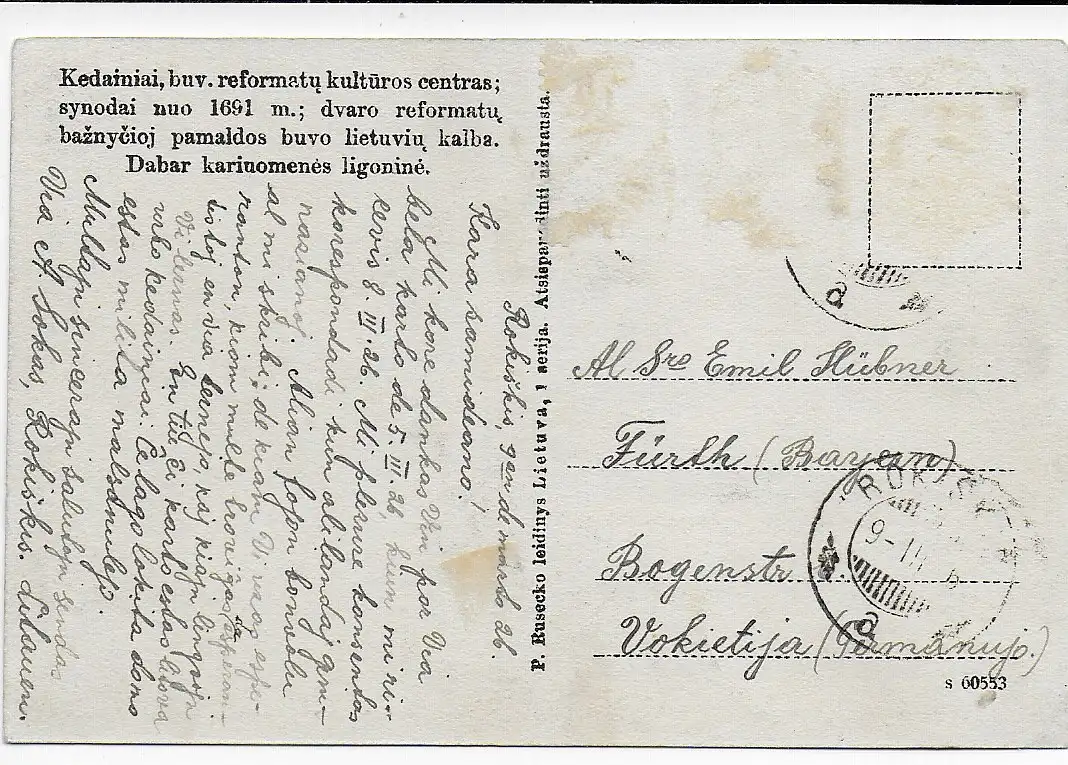 Kedainiai, buv. reformatų kultūros centras;
synodai nuo 1691 m.; dvaro reformatų
bažnyčioj pamaldos buvo lietuvių kalba.
Dabar kariuomenės ligoninė.
P. Rusecko leidinys Lietuva, 1 serija. Atsispausdinti uždrausta.
Rokiškis, 9an de marto 26
Kara samideano!
Mi kore dankas Vin por Via
bela karto de 5. III. 26, kiun mi ri-
cevis 8. III. 26. Mi plezure konsendas
korespondadi kun alilandaj gm-
nasianoj. Alian fojon bonvolu
al mi skribi, de kiam Vi
ranton, kiom multe troviĝas
tistoj en Via lernejo kaj kiaj lingvoj
Vi lernas. En tiu ĉi karto estas
urbo Kedainiai. Ĉe lago lokita domo
estas milita malsanulejo.
Multajn sincerajn salutojn sendas
Via A. Sokas, Rokiškis. Litauen.
Al Sro Emil Hübner
Fürth (Bayern)
Bogenstr
Vokietija (Germanujo.)
ROKIŠ
9-III 6
a
a
s 60553